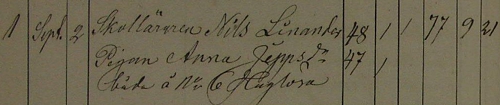 1 Sept. 2 Skolläraren Nils Linander 48 1 1 77 9 21
Pigan Anna Jeppsdr 47 1
båda å No 6 Höglösa